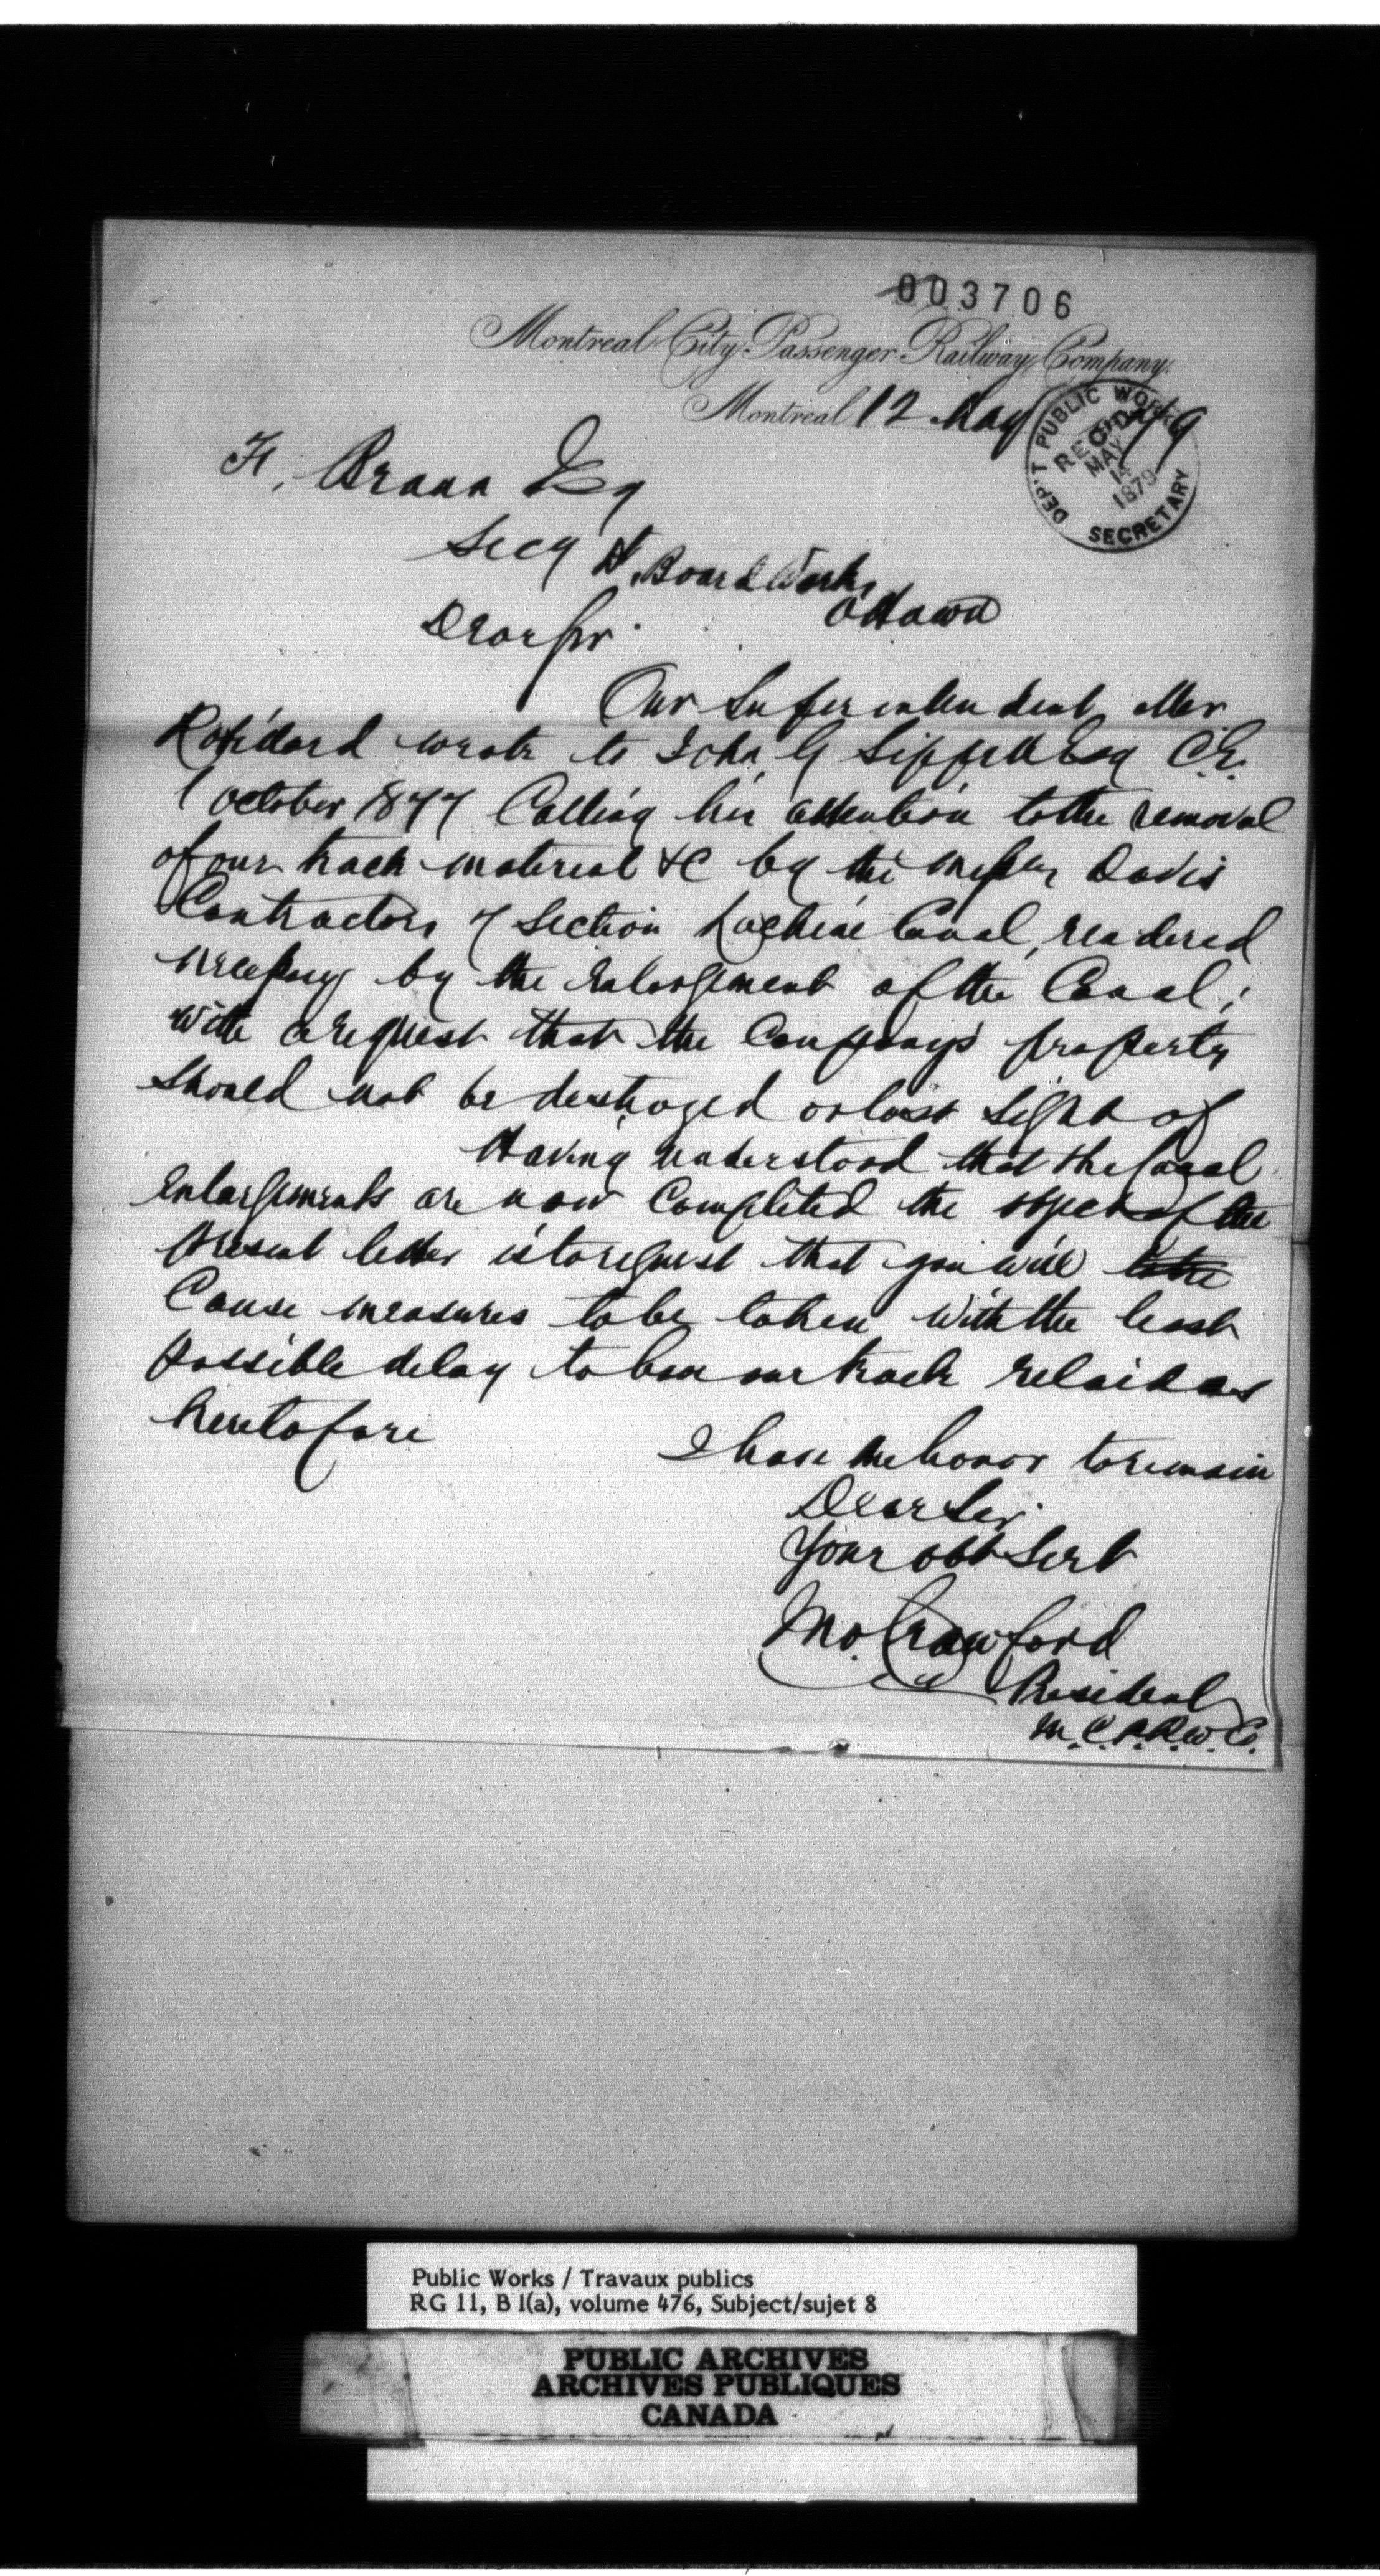 003706
Montreal City Passenger Railway Company.
Montreal 12 May 1879
DEP'T PUBLIC WORKS
REC'D
MAY
14
1879
SECRETARY
F. Braun Esq
Secy Board Works
Ottawa
Dear Sir
Our Superintendent Mr
Robidard wrote to John G Sippell Esq C.E.
1 October 1877 Calling his attention to the removal
of our track material &c by the Messrs Davis
Contractors of Section Lachine Canal, rendered
necessary by the enlargement of the Canal;
with a request that the Company's property
should not be destroyed or lost sight of
Having understood that the Canal
Enlargements are now Completed the object of the
present letter is to request that you will
Cause measures to be taken with the least
possible delay to have our track relaid as
heretofore
I have the honor to remain
Dear Sir
Your obt Servt
Jno. Crawford
President
M.C.P.R.W. Co.
Public Works / Travaux publics
RG 11, B 1(a), volume 476, Subject/sujet 8
PUBLIC ARCHIVES
ARCHIVES PUBLIQUES
CANADA